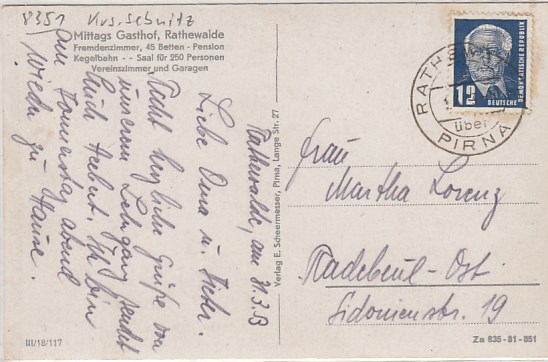 8351 Krs. Sebnitz
Mittags Gasthof, Rathewalde
Fremdenzimmer, 45 Betten - Pension
Kegelbahn - - Saal für 250 Personen
Vereinszimmer und Garagen
Rathewalde, am 31.3.53
Liebe Oma u.
Recht herzliche Grüße von
unserem Lehrgang sendet
Euch Herbert. Ich bin
am Donnerstag abend
wieder zu Hause.
III/18/117
Verlag E. Scheermesser, Pirna, Lange Str. 27
12
DEUTSCHE
DEMOKRATISCHE REPUBLIK
RATHEWALDE
über
PIRNA
Frau
Martha Lorenz
Radebeul-Ost
Sidonienstr. 19
Za 835-81-851